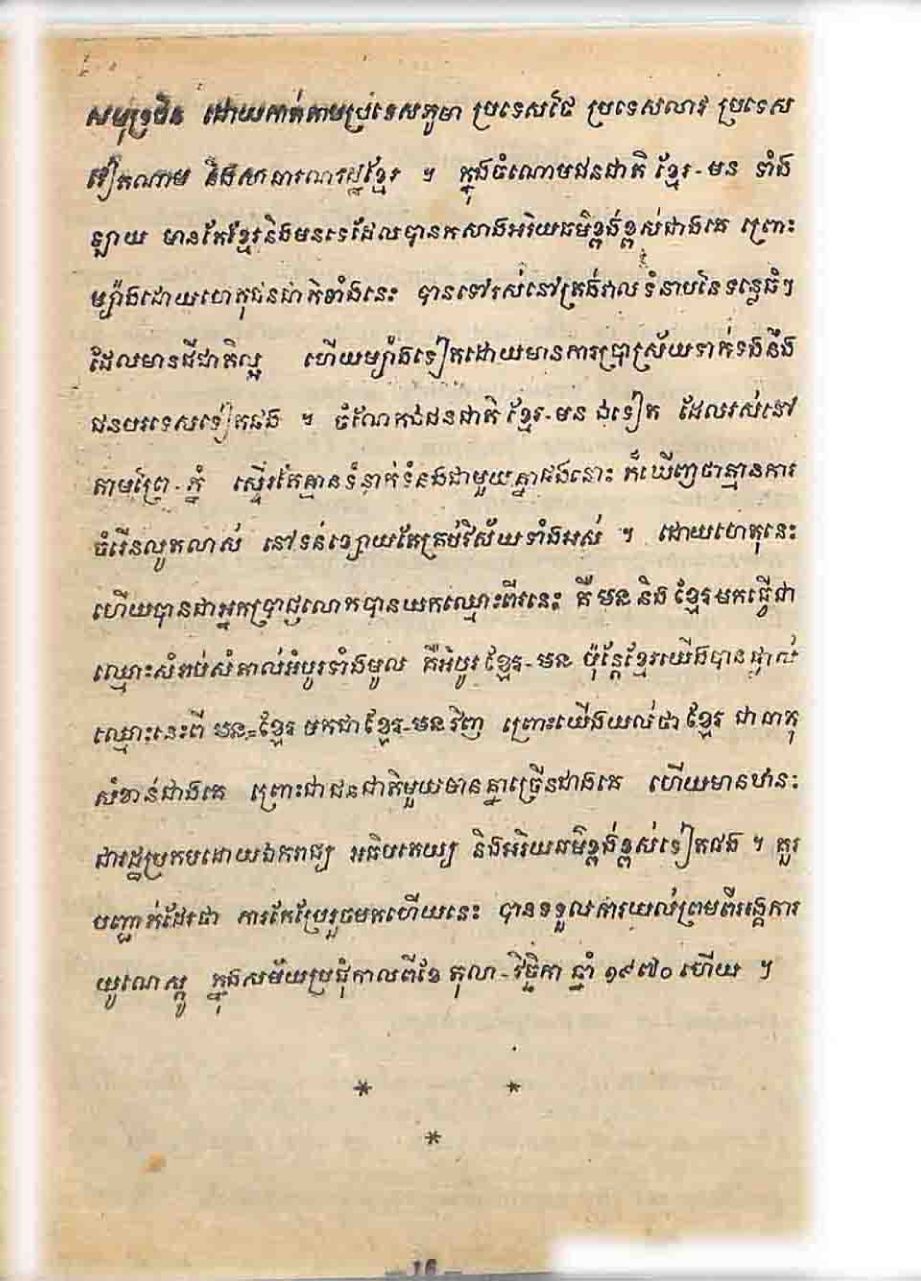 សមុទ្រចិន ដោយកាត់តាមប្រទេសភូមា ប្រទេសថៃ ប្រទេសលាវ ប្រទេស
វៀតណាម និងសាធារណរដ្ឋខ្មែរ ។ ក្នុងចំណោមជនជាតិ ខ្មែរ-មន ទាំង
ឡាយ មានតែខ្មែរនិងមនទេដែលបានកសាងអរិយធម៌ខ្ពង់ខ្ពស់ជាងគេ ព្រោះ
ម្យ៉ាងដោយហេតុជនជាតិទាំងនេះ បានទៅរស់នៅត្រង់វាលទំនាបនៃទន្លេធំៗ
ដែលមានជីជាតិល្អ ហើយម្យ៉ាងទៀតដោយមានការប្រាស្រ័យទាក់ទងនឹង
ជនបរទេសទៀតផង ។ ចំណែកជនជាតិ ខ្មែរ-មន ឯទៀត ដែលរស់នៅ
តាមព្រៃ-ភ្នំ ស្ទើរតែគ្មានទំនាក់ទំនងជាមួយគ្នាផងនោះ ក៏ឃើញថាគ្មានការ
ចំរើនលូតលាស់ នៅទន់ខ្សោយតែគ្រប់វិស័យទាំងអស់ ។ ដោយហេតុនេះ
ហើយបានជាអ្នកប្រាជ្ញលោកបានយកឈ្មោះពីរនេះ គឺ មន និង ខ្មែរមកធ្វើជា
ឈ្មោះសំរាប់សំគាល់អំបូរទាំងមូល គឺអំបូរ ខ្មែរ-មន ប៉ុន្តែខ្មែរយើងបានផ្លាស់
ឈ្មោះនេះពី មន-ខ្មែរ មកជា ខ្មែរ-មន វិញ ព្រោះយើងយល់ថា ខ្មែរ ជាធាតុ
សំខាន់ជាងគេ ព្រោះជាជនជាតិមួយមានគ្នាច្រើនជាងគេ ហើយមានឋានៈ
ជារដ្ឋប្រកបដោយឯករាជ្យ អធិបតេយ្យ និងអរិយធម៌ខ្ពង់ខ្ពស់ទៀតផង ។ គួរ
បញ្ជាក់ដែរថា ការកែប្រែរួចមកហើយនេះ បានទទួលការយល់ព្រមពីអង្គការ
យូណេស្កូ ក្នុងសម័យប្រជុំកាលពីខែ តុលា-វិច្ឆិកា ឆ្នាំ ១៩៧០ ហើយ ។
* *
*
- 16 -